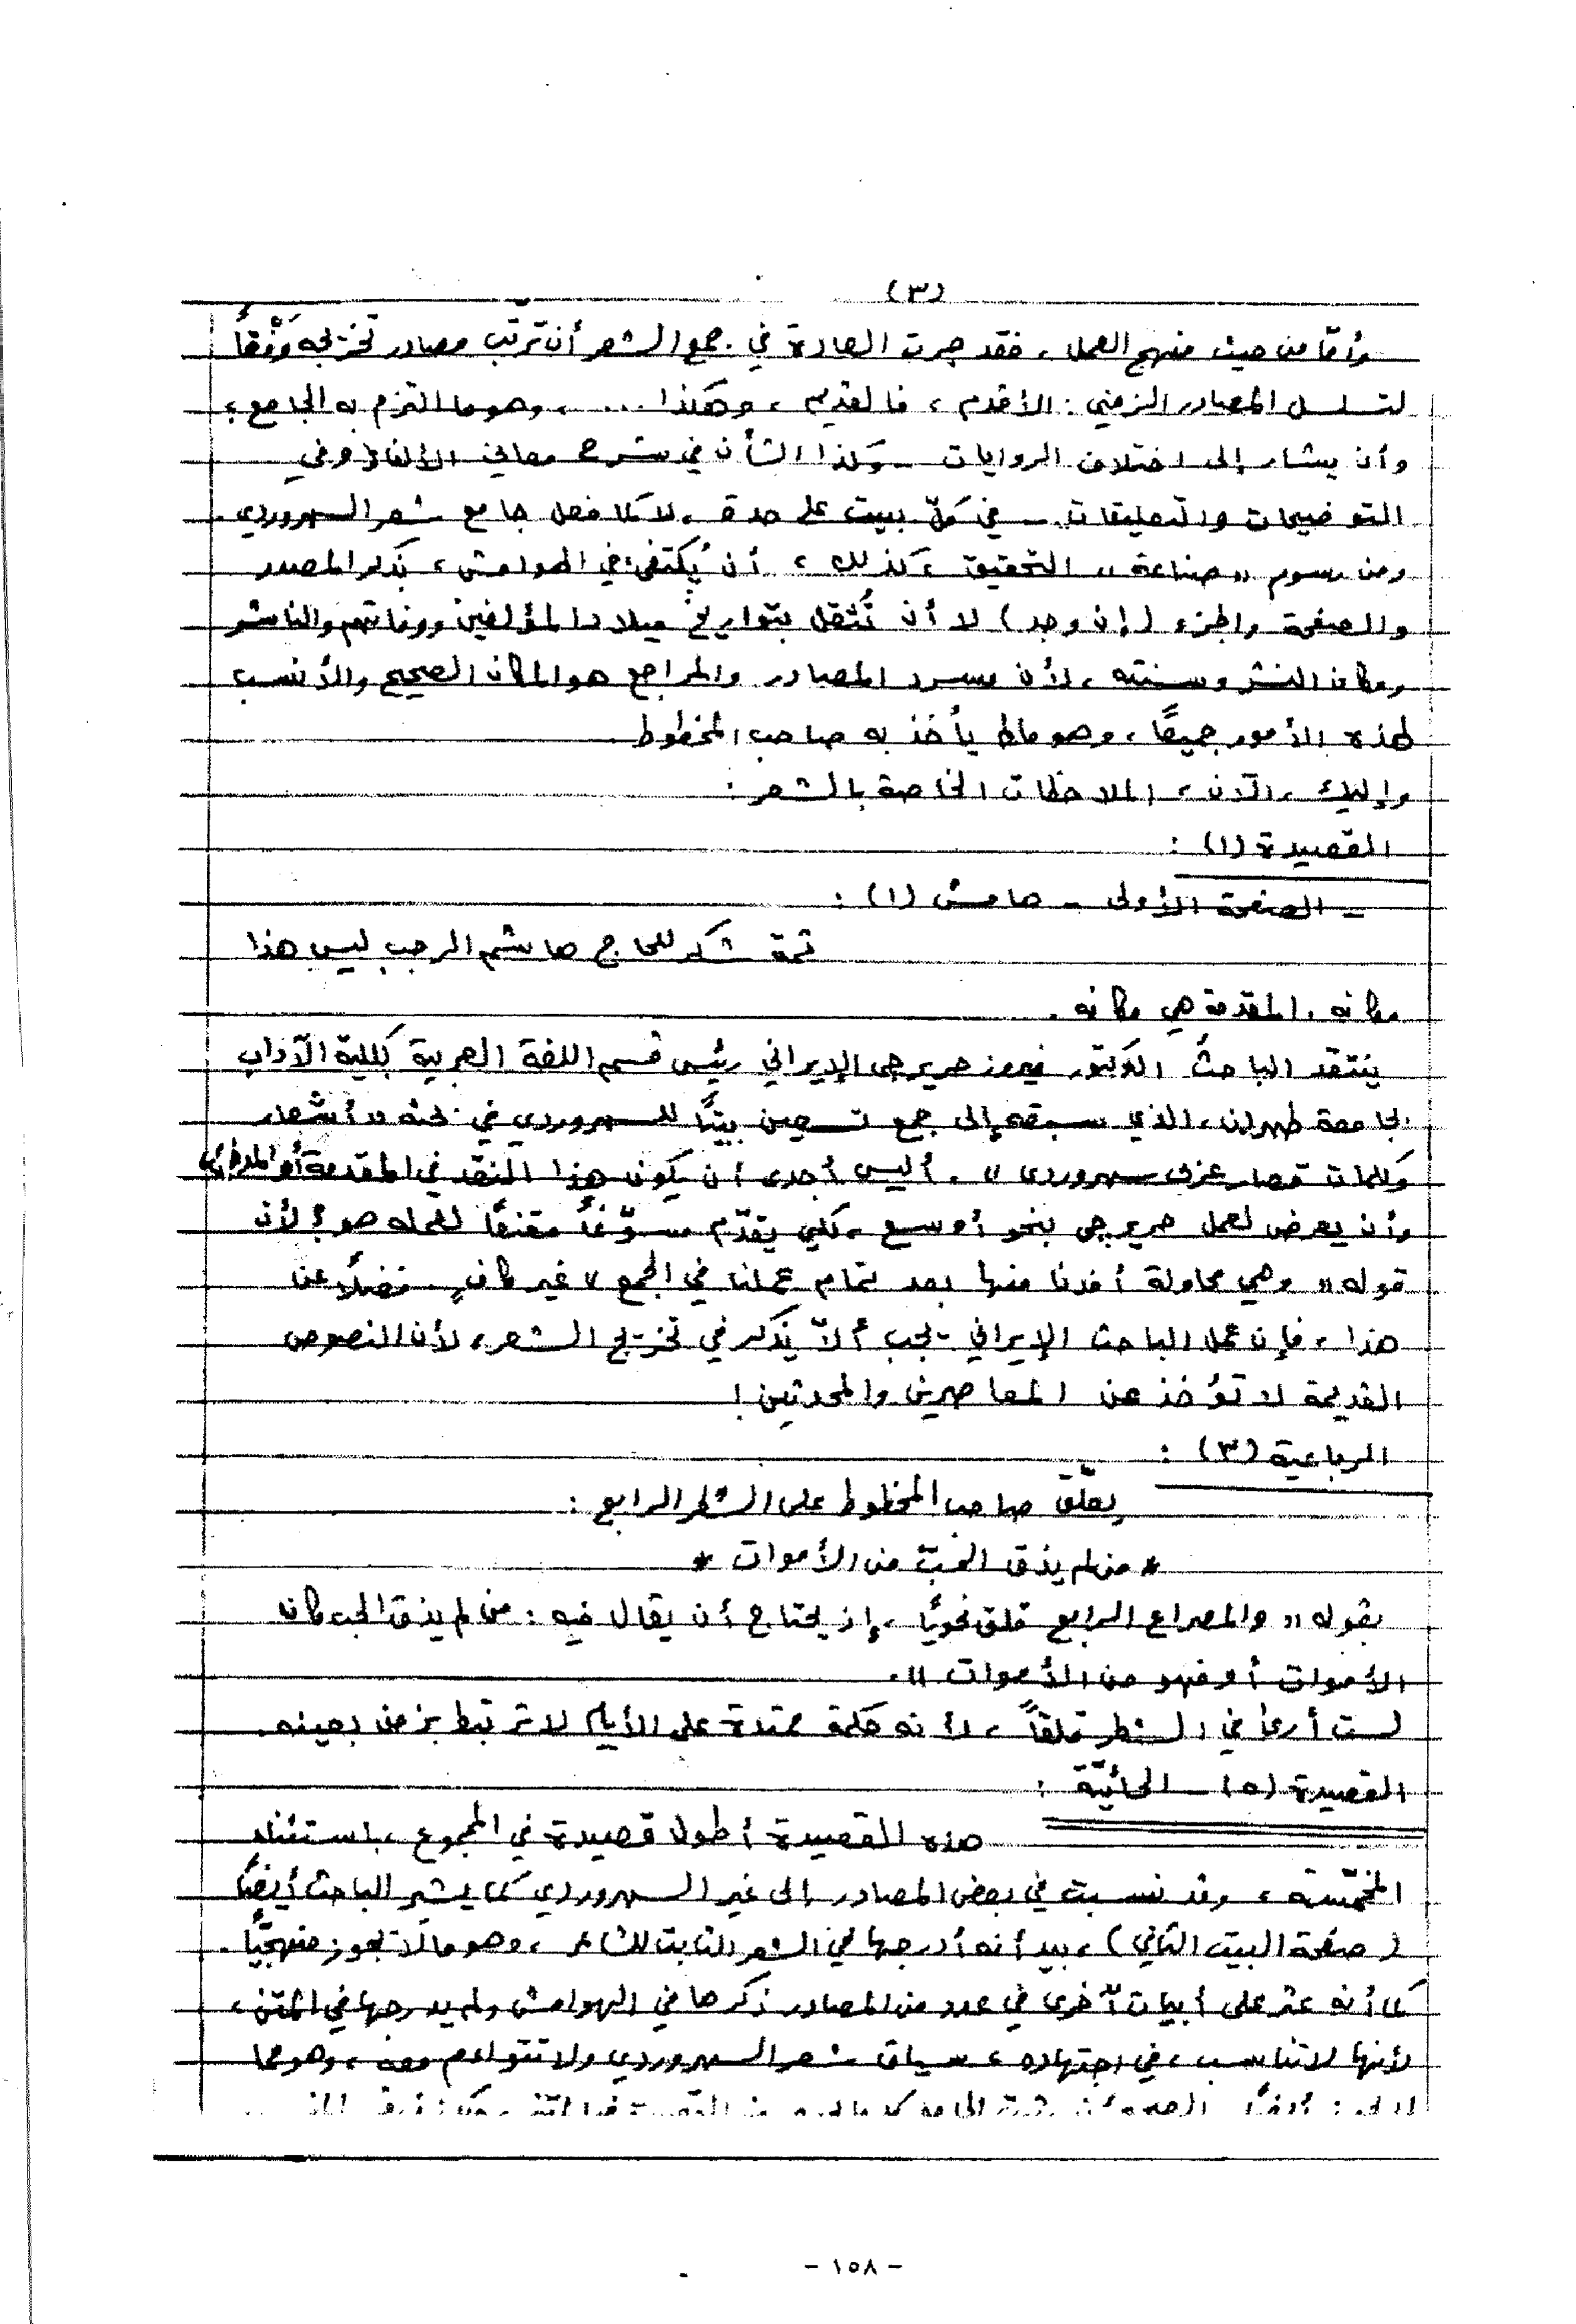 (٣)
وأمّا من حيث منهج العمل ، فقد جرت العادة في جمع الشعر أن ترتّب مصادر تخريجه وَفْقاً
لتسلسل المصادر الزمني : الأقدم ، فالقديم ، وهكذا ... ، وهو ما التزم به الجامع ،
وأن يشار إلى اختلاف الروايات – وكذا الشأن في شرح معاني الألفاظ وفي
التوضيحات والتعليقات – في كلّ بيت على حدة ، لا كما فعل جامع شعر السهروردي .
ومن رسوم « صناعة » التحقيق ، كذلك ، أن يُكتفى ، في الهوامش ، بذكر المصدر
والصفحة والجزء (إن وجد) لا أن تُثقل بتواريخ ميلاد المؤلفين ووفاتهم والناشر
ومكان النشر وسنته ، لأن مسرد المصادر والمراجع هو المكان الصحيح والأنسب
لهذه الأمور جميعًا ، وهو ما لم يأخذ به صاحب المخطوط .
وإليك ، الآن ، الملاحظات الخاصة بالشعر :
القصيدة (١) :
– الصفحة الأولى – هامش (١) :
ثمة شكر للحاج هاشم الرجب ليس هذا
مكانه ، المقدمة هي مكانه .
ينتقد الباحثُ الدكتور فيروز حريرجي الإيراني رئيس قسم اللغة العربية بكلية الآداب
بجامعة طهران ، الذي سبقه إلى جمع تسعين بيتًا للسهروردي في بحثه « أشعار
وكلمات قصار عربى سهروردى » . أليس أجدى أن يكون هذا النقد في المقدمة أو المدخل
وأن يعرض لعمل حريرجي بنحو أوسع ، لكي يقدّم مسوّغاً مقنعًا لعمله هو ؟ لأن
قوله « وهي محاولة أفدنا منها بعد تمام عملنا في الجمع » غير كافٍ . فضلاً عن
هذا ، فإن عمل الباحث الإيراني يجب ألاّ يذكر في تخريج الشعر ، لأن النصوص
القديمة لا تؤخذ عن المعاصرين والمحدثين !
الرباعية (٣) :
يعلّق صاحب المخطوط على الشطر الرابع :
* من لم يذق الحبّ من الأموات *
بقوله « والمصراع الرابع قلق نحويًّا ، إذ يحتاج أن يقال فيه : من لم يذق الحب كان
الأموات أو فهو من الأموات » .
لست أرى في الشطر قلقاً ، لأنه حكمة ممتدة على الأيام لا ترتبط بزمن بعينه .
القصيدة (٥) – الحائيّة :
هذه القصيدة أطول قصيدة في المجموع ، باستثناء
المخمّسة ، وقد نسبت في بعض المصادر إلى غير السهروردي كما يشير الباحث أيضًا
(صفحة البيت الثاني) ، بيد أنه أدرجها في الشعر الثابت للشاعر ، وهو ما لا يجوز منهجيًّا .
كما أنه عثر على أبيات أخرى في عدد من المصادر ذكرها في الهوامش ولم يدرجها في المتن ،
لأنها لا تناسب ، في اجتهاده ، سياق شعر السهروردي ولا تتواءم معه ، وهو مما
– ١٥٨ –